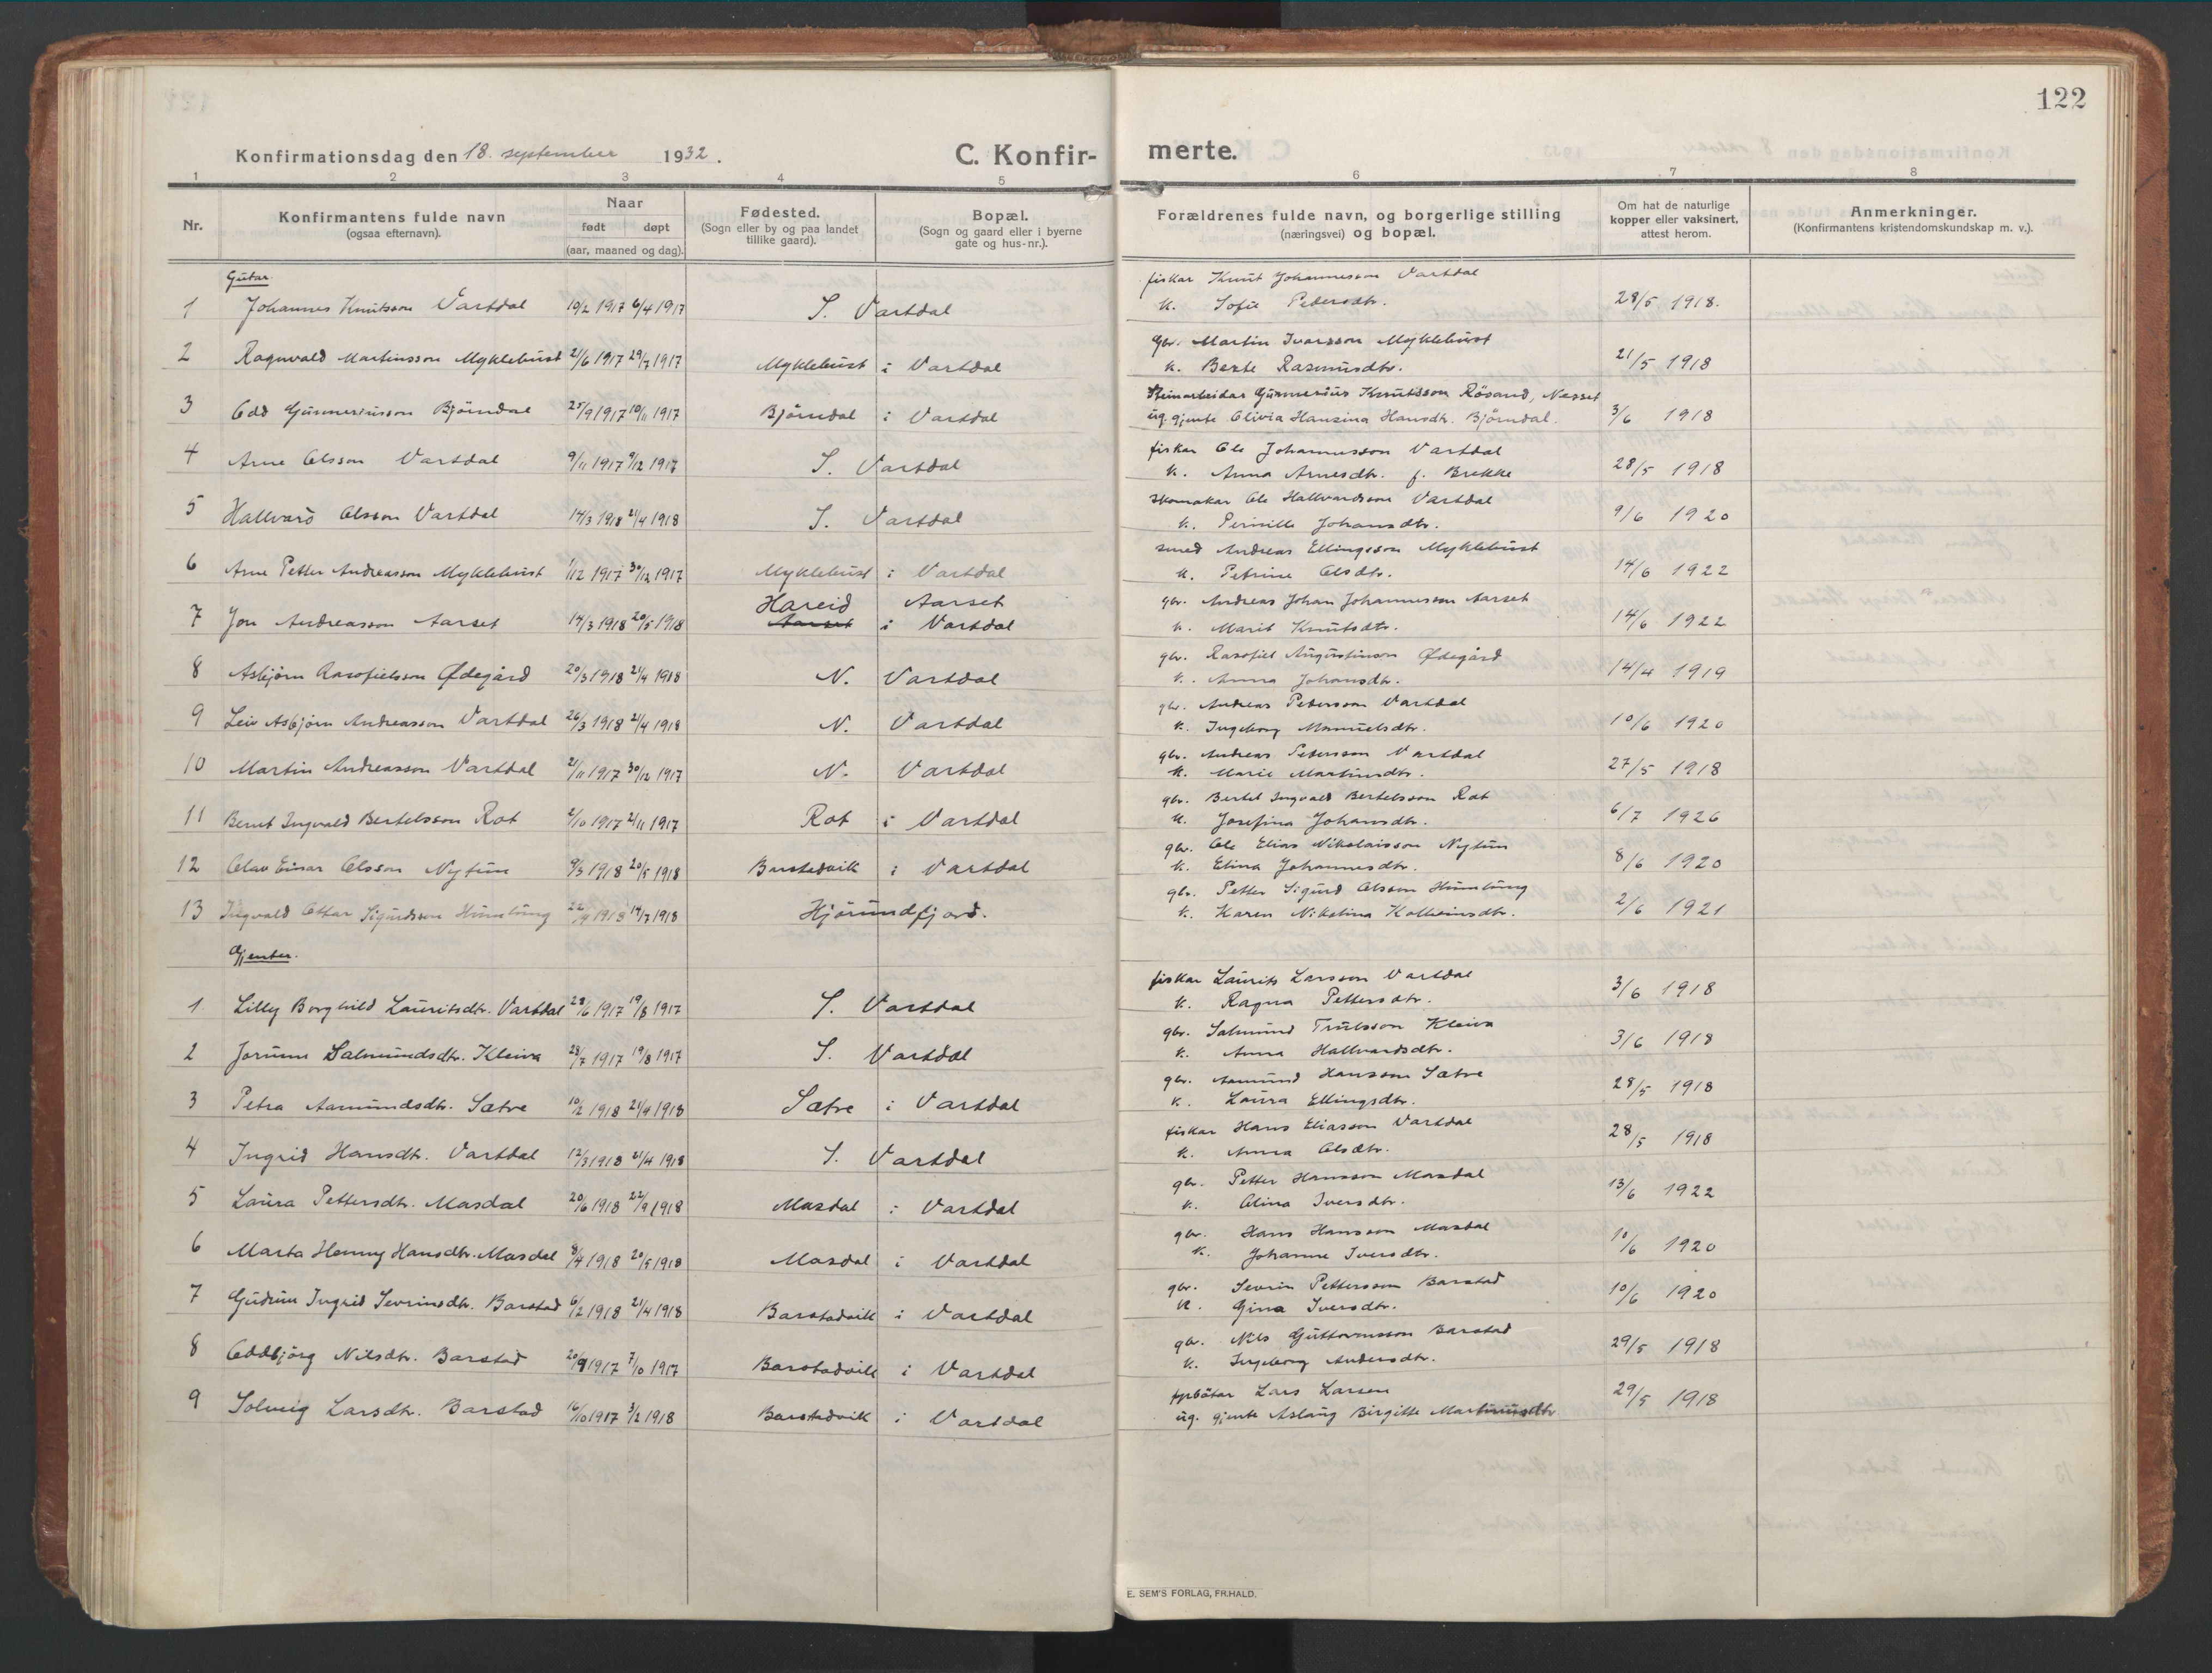 122
Konfirmationsdag den 18. september 1932.
C. Konfir-
merte.
1 2 3 4 5 6 7 8
Nr.
Konfirmantens fulde navn
(ogsaa efternavn).
Naar
født døpt
(aar, maaned og dag).
Fødested.
(Sogn eller by og paa landet
tillike gaard).
Bopæl.
(Sogn og gaard eller i byerne
gate og hus-nr.).
Forældrenes fulde navn, og borgerlige stilling
(næringsvei) og bopæl.
Om hat de naturlige
kopper eller vaksinert,
attest herom.
Anmerkninger.
(Konfirmantens kristendomskundskap m. v.).
Gutar
fiskar Knut Johannesson Vartdal
1 Johannes Knutsson Vartdal 19/2 1917 6/4 1917 S. Vartdal k. Sofie Pedersdtr. 28/5 1918.
gbr. Martin Ivarsson Myklebust
2 Ragnvald Martinsson Myklebust 2/6 1917 29/7 1917 Myklebust i Vartdal k. Berte Rasmusdtr. 21/5 1918
Steinarbeidar Gunnerius Knutsson Rösand, Nesset
3 Odd Gunneriusson Björndal 25/9 1917 10/11 1917 Björndal i Vartdal ug. gjente Olivia Hansina Hansdtr. Björndal. 3/6 1918
fiskar Ole Johannesson Vartdal
4 Arne Olsson Vartdal 9/11 1917 9/12 1917 S. Vartdal k. Anna Arnesdtr. f. Brekke 28/5 1918
skomakar Ole Hallvardsson Vartdal
5 Hallvard Olsson Vartdal 14/3 1918 21/4 1918 S. Vartdal k. Pernille Johansdtr. 9/6 1920
smed Andreas Ellingsson Myklebust
6 Arne Petter Andreasson Myklebust 1/12 1917 30/12 1917 Myklebust i Vartdal k. Petrine Olsdtr. 14/6 1922
Hareid Aarset gbr. Andreas Johan Johannesson Aarset
7 Jon Andreasson Aarset 14/3 1918 20/5 1918 Aarset i Vartdal k. Marit Knutsdtr. 14/6 1922
gbr. Rasofiel Augustinson Ødegård
8 Asbjörn Rasofielsson Ødegård 20/3 1918 21/4 1918 N. Vartdal k. Anna Johansdtr. 14/4 1919
gbr. Andreas Pedersson Vartdal
9 Leiv Asbjörn Andreasson Vartdal 26/3 1918 21/4 1918 N. Vartdal k. Ingeborg Manuelsdtr. 10/6 1920
gbr. Andreas Petersson Vartdal
10 Martin Andreasson Vartdal 21/11 1917 30/12 1917 N. Vartdal k. Marie Martinsdtr. 27/5 1918
gbr. Bertel Ingvald Bertelsson Rot
11 Bernt Ingvald Bertelsson Rot 2/10 1917 2/11 1917 Rot i Vartdal k. Josefina Johansdtr. 6/7 1926
gbr. Ole Elias Nikolaisson Nytun
12 Olav Einar Olsson Nytun 9/3 1918 20/5 1918 Barstadvik i Vartdal k. Elina Johannesdtr. 8/6 1920
gbr. Petter Sigurd Olsson Humlung
13 Ingvald Ottar Sigurdsson Humlung 22/4 1918 14/7 1918 Hjörundfjord. k. Karen Nikolina Kolbeinsdtr. 2/6 1921
Gjenter.
fiskar Laurits Larsson Vartdal
1 Lilly Borghild Lauritsdtr. Vartdal 28/6 1917 19/8 1917 S. Vartdal k. Ragna Pettersdtr. 3/6 1918
gbr. Salmund Trulsson Kleiva
2 Jorunn Salmundsdtr. Kleiva 28/7 1917 19/8 1917 S. Vartdal k. Anna Hallvardsdtr. 3/6 1918
gbr. Aamund Hansson Sætre
3 Petra Aamundsdtr. Sætre 10/2 1918 21/4 1918 Sætre i Vartdal k. Laura Ellingsdtr. 28/5 1918
fiskar Hans Eliasson Vartdal
4 Ingrid Hansdtr. Vartdal 12/3 1918 21/4 1918 S. Vartdal k. Anna Olsdtr. 28/5 1918
gbr. Petter Hansson Masdal
5 Laura Pettersdtr. Masdal 20/6 1918 22/9 1918 Masdal i Vartdal k. Olina Iversdtr. 13/6 1922
gbr. Hans Hansson Masdal
6 Marta Henny Hansdtr. Masdal 8/4 1918 20/5 1918 Masdal i Vartdal k. Johanne Iversdtr. 10/6 1920
gbr. Sevrin Pettersson Barstad
7 Gudrun Ingrid Sevrinsdtr. Barstad 6/2 1918 21/4 1918 Barstadvik i Vartdal k. Gina Iversdtr. 10/6 1920
gbr. Nils Guttormsson Barstad
8 Oddbjörg Nilsdtr. Barstad 20/9 1917 7/10 1917 Barstadvik i Vartdal k. Ingeborg Andersdtr. 29/5 1918
fyrbötar Lars Larsen
9 Solveig Larsdtr. Barstad 16/10 1917 3/2 1918 Barstadvik i Vartdal ug. gjente Aslaug Birgitte Martinusdtr. 29/5 1918
E. SEM'S FORLAG, FR.HALD.